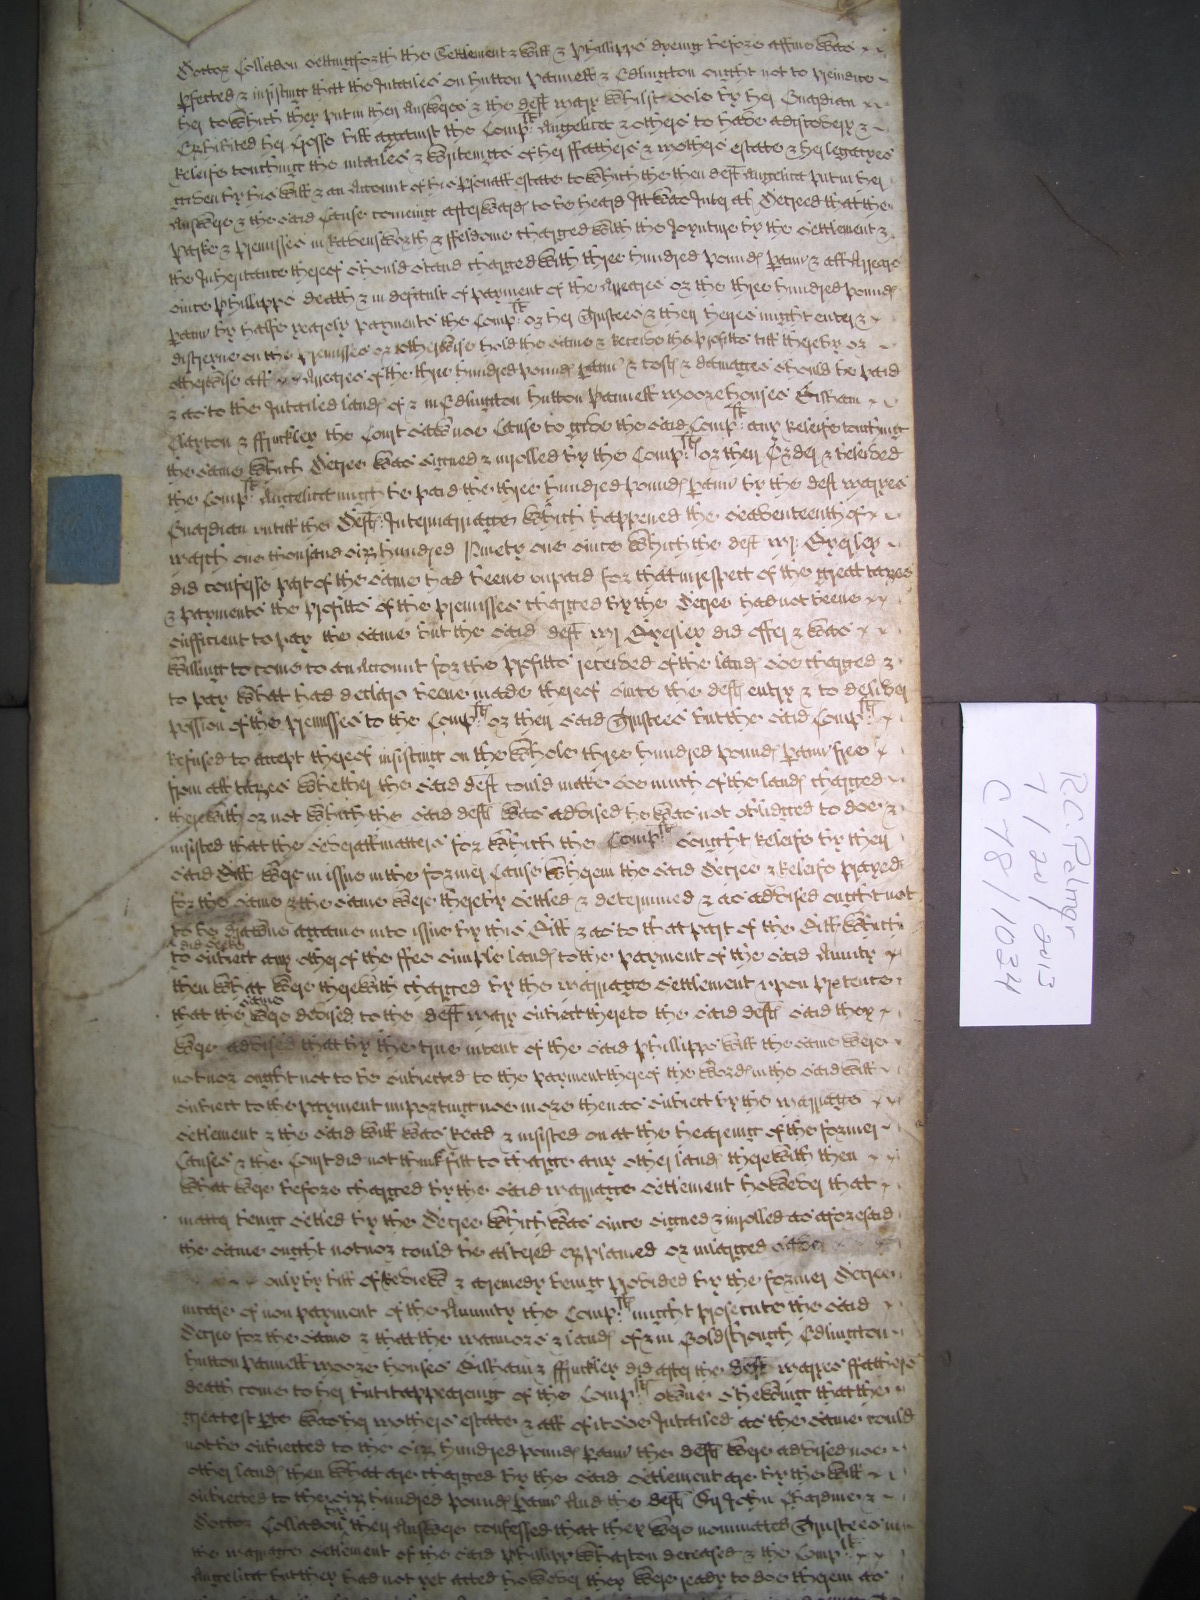 Doctor Colladon settingforth the Settlement & will & Phillipps dyeing before assme was
pfected & insisting that the Intailes on hutton Pannell & Edlington ought not to preiudice
her to which they put in their Answeres & the deft mary whilst sole by her Guardian
Exhibited her Crosse bill against the Compltt Angelica & others to have a discovery &
Releife touching the intailes & writeings of her ffathers & mothers estate & her legacyes
given by his will & an Account of his psonall estate to which the then deft Angelica put in her
Answere & the said Cause comeing afterwards to be heard Itt was Inter al Decreed that the
Parke & premisses in Ravensworth & ffeldome charged with the Joynture by the settlement &
the Inheritance thereof should stand charged with three hundred pounds p ann & all Arreares
since Phillipps death & in default of payment of the Arreares or the three hundred pounds
p ann by halfe yearely payments the Compltt or her Trustees & their heires might enter &
distreyne on the premisses or otherwise hold the same & receive the profitts till thereby or
otherwise all Arreares of the three hundred pounds p ann & costs & damages should be paid
& as to the Intailed lands of & in Edlington hutton Pannell moorehouses Bilham
Clayton & ffrickley the Court saw noe Cause to give the said Compltt any Releife touching
the same which Decree was signed & inrolled by the Compltts or their Order & beleived
the Compltt Angelica might be paid the three hundred pounds p ann by the deft maryes
Guardian untill the Defts Intermarriage which happened the seaventeenth of
march one thousand six hundred Ninety one since which the deft mr Byerley
did confesse part of the same had beene unpaid for that in respect of the great taxes
& payments the profitts of the premisses charged by the Decree had not beene
sufficient to pay the same but the said deft mr Byerley did offer & was
willing to come to an Account for the profitts received of the lands soe charged &
to pay what had beene made thereof since the defts entry & to deliver
possion of the premisses to the Compltts or their said Trustees but the said Compltts
refused to accept thereof insisting on the whole three hundred pounds p ann free
from all taxes whether the said deft could make soe much of the lands charged
therewith or not which the said deft was advised he was not obliged to doe &
insisted that the severall matters for which the Compltts sought Releife by their
said Bill were in issue in the former Cause wherein the said Decree & Releife prayed
for the same & the same were thereby settled & determined & as advised ought not
to be drawne againe into issue by this Bill & as to that part of the Bill which
did seeke
to subiect any other of the ffee simple lands to the payment of the said Annity
then what were therewith charged by the marriage settlement upon pretence
that the same were devised to the deft mary subiect thereto the said defts said they
were advised that by the true intent of the said Phillipps will the same were
not nor ought not to be subiected to the payment thereof the words in the said will
subiect to the payment importing noe more then as subiect by the marriage
settlement & the said will was Read & insisted on at the heareing of the former
Causes & the Court did not think fitt to charge any other lands therewith then
what were before charged by the said marriage settlement however that
matter being setled by the Decree which was since signed & inrolled as aforesaid
the same ought not nor could be altered explained or inlarged
only by bill of Review & a remedy being provided by the former Decree
incase of non payment of the Annity the Compltts might prosecute the said
Decree for the same & that the mannors & lands of & in Goldsbrough Edlington
hutton Pannell moore houses Bilham & ffrickley did after the deft maryes ffathers
death come to her but itt appeareing of the Compltts owne sheweing that the
greatest pte was her mothers estate & all of it soe Intailed as the same could
not be subiected to the six hundred pounds p ann the defts were advised noe
other lands then what are charged by the said settlement are by the will
subiected to the six hundred pounds p ann And the defts Sir John Chardine &
Doctor Colladon by their Answere confessed that they were nominated Trustees in
the marriage settlement of the said Phillipp Wharton deceased & the Compltt
Angelica but they had not yet acted however they were ready to doe therein as
R C Palmer
7 / 1 20 / 2013
C 78 / 1024